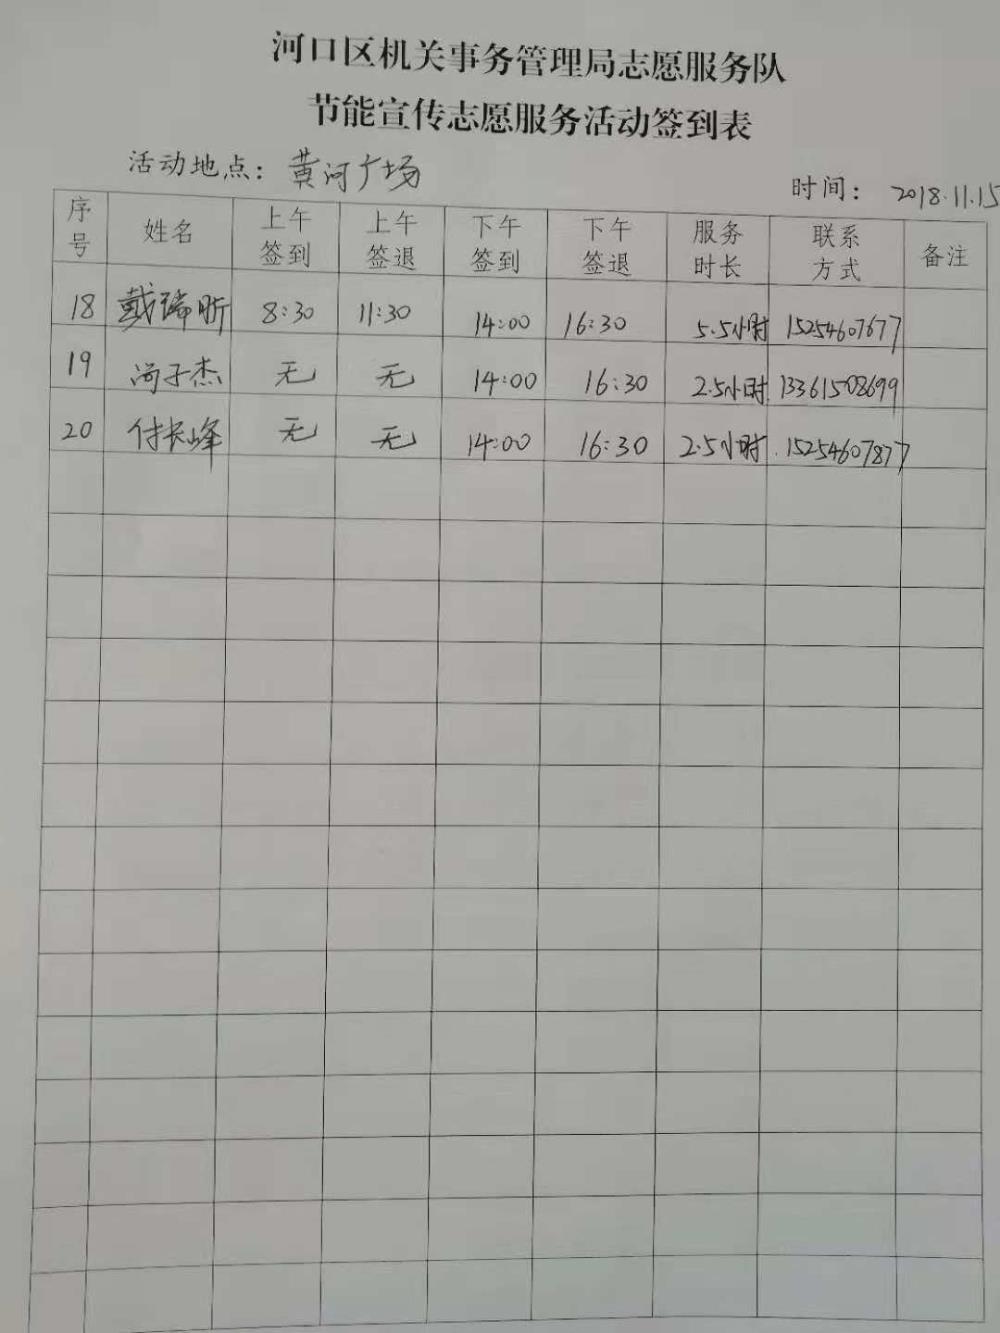 河口区机关事务管理局志愿服务队
节能宣传志愿服务活动签到表
活动地点：黄河广场 时间：2018.11.15
序号 姓名 上午签到 上午签退 下午签到 下午签退 服务时长 联系方式 备注
18 戴瑞昕 8:30 11:30 14:00 16:30 5.5小时 15254607677
19 尚子杰 无 无 14:00 16:30 2.5小时 13361508699
20 付长峰 无 无 14:00 16:30 2.5小时 15254607877